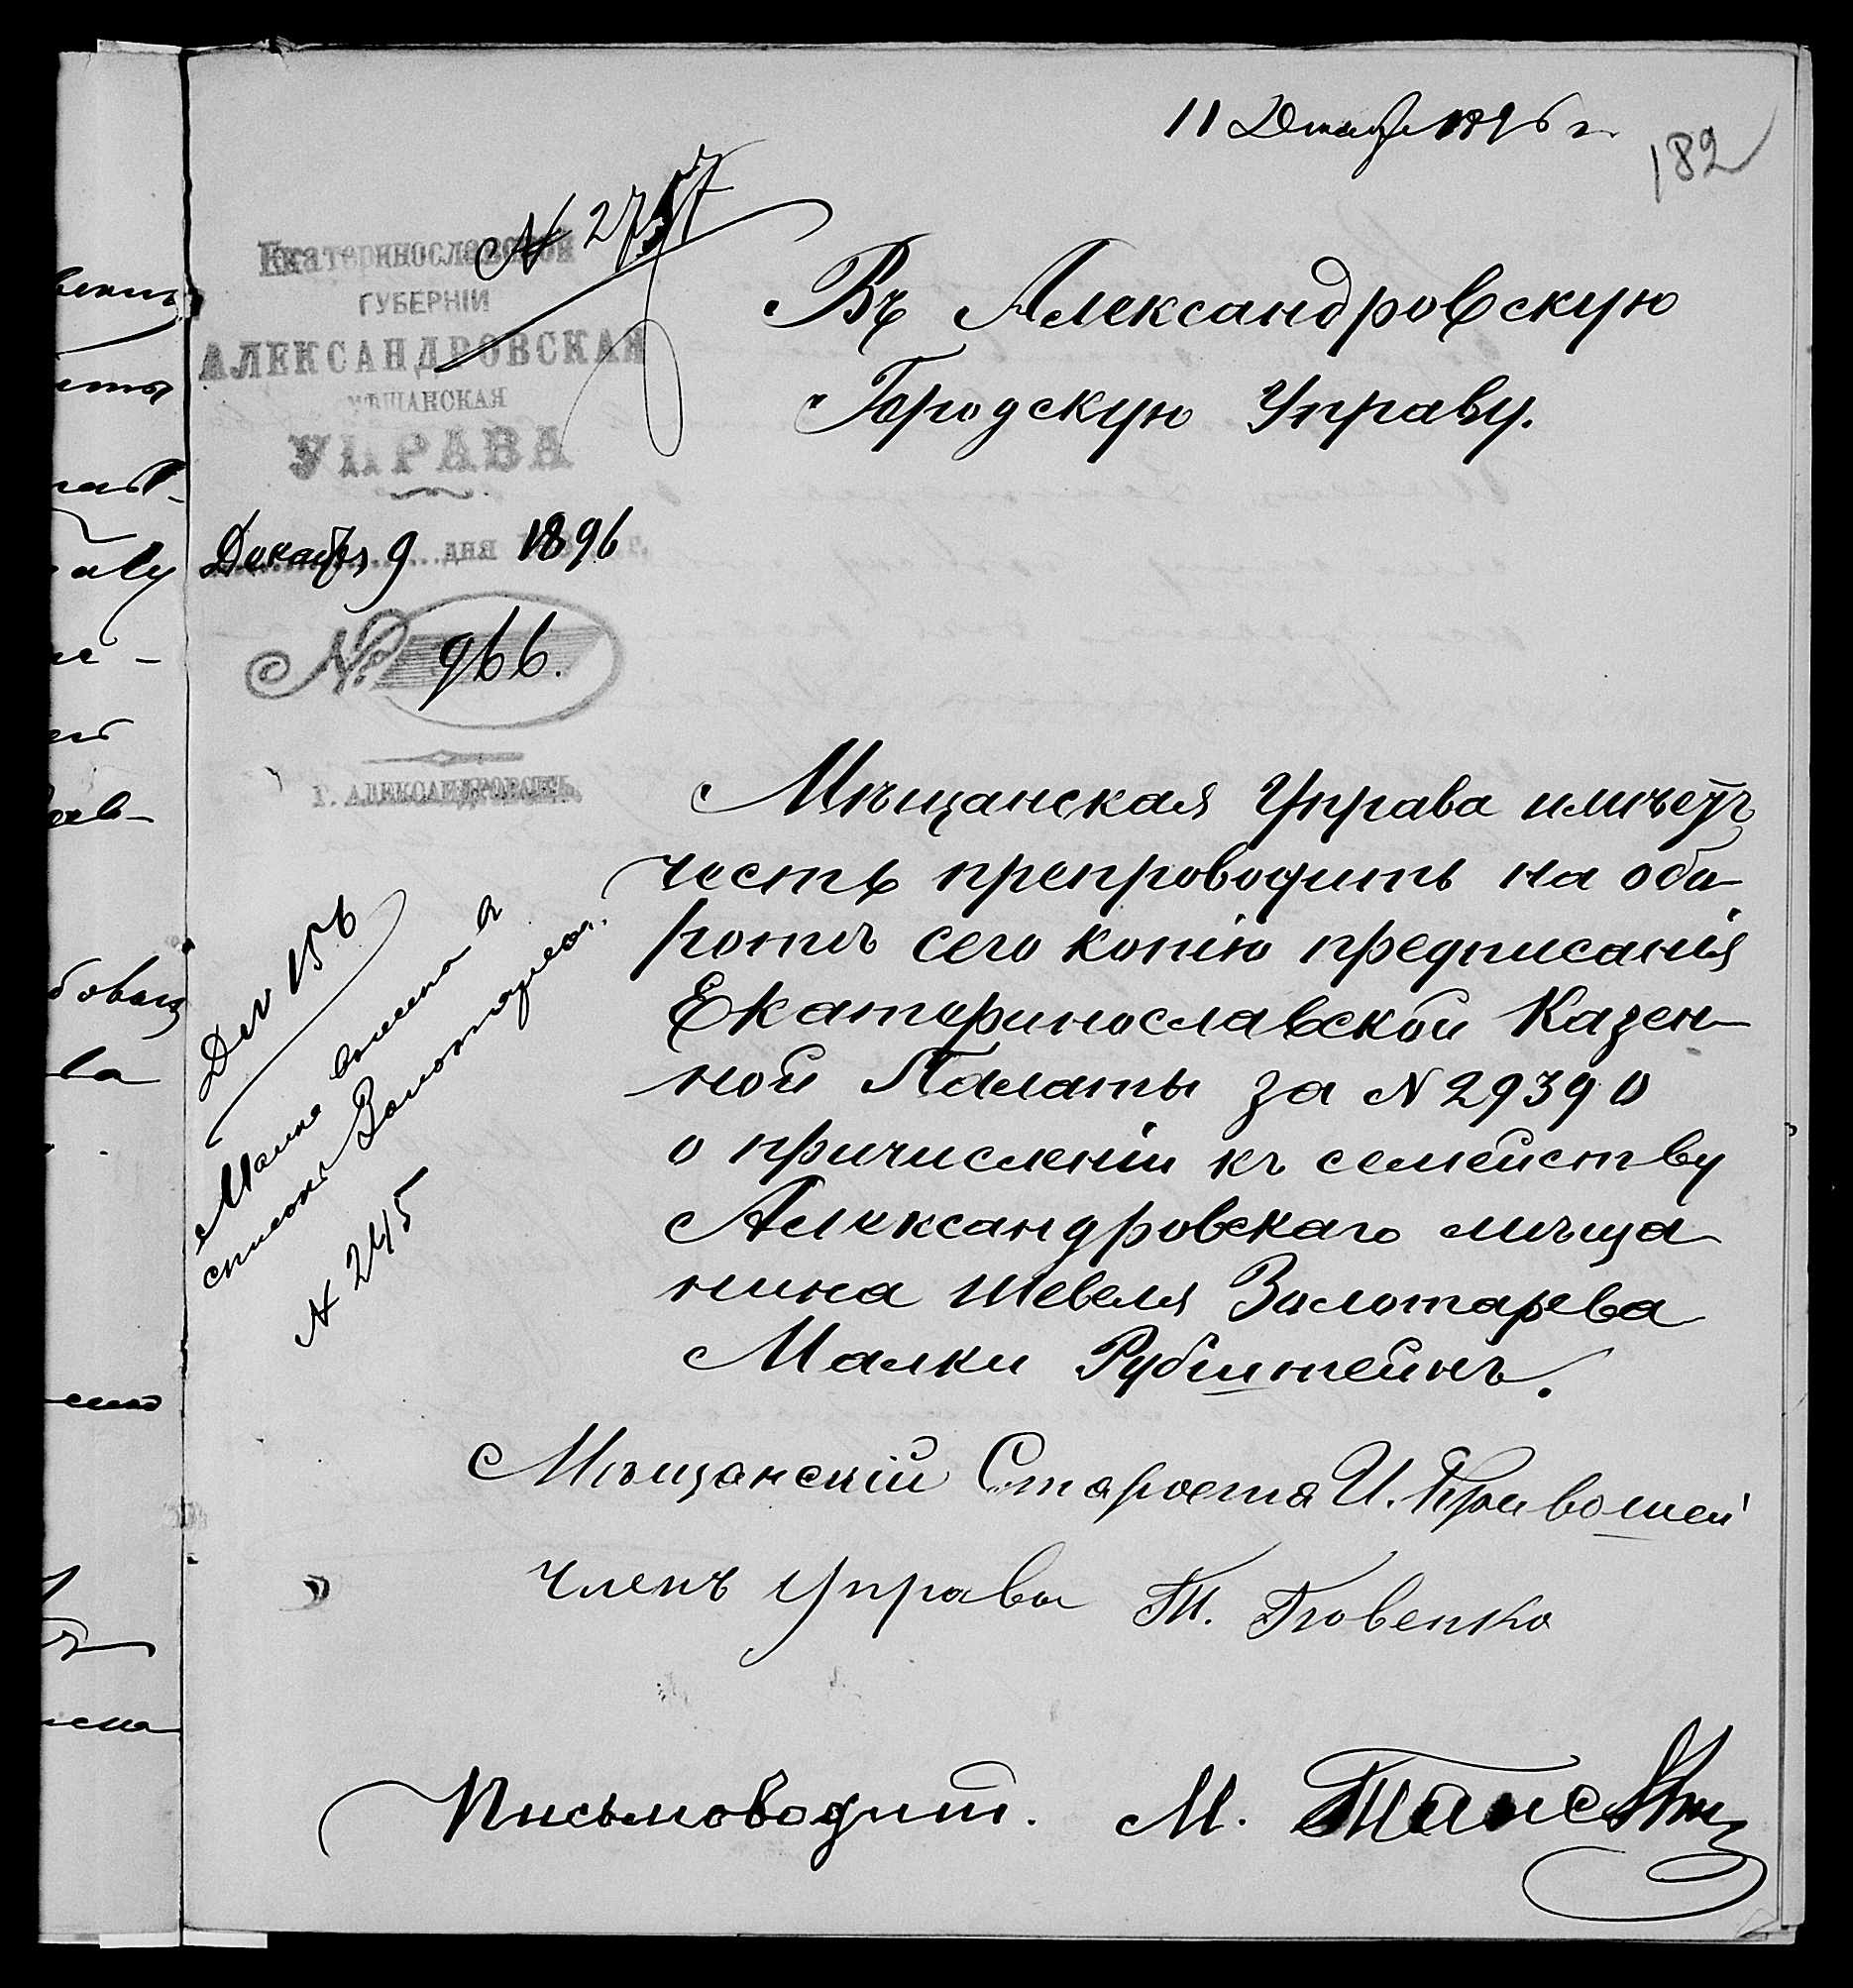 11 Декабря 1896 г.
182
N 2757
Екатеринославской
ГУБЕРНІИ
АЛЕКСАНДРОВСКАЯ
МѢЩАНСКАЯ
УПРАВА
Декабря 9 дня 1896 г.
№ 966.
Г. АЛЕКСАНДРОВСКЪ
Въ Александровскую
Городскую Управу.
Мѣщанская Управа имѣетъ
честь препроводить на обо-
ротѣ сего копію предписанія
Екатеринославской Казен-
ной Палаты за N 29390
о причисленіи къ семейству
Александровскаго мѣща-
нина Шевеля Золотарева
Малки Рубинштейнъ.
156
Малка внесена въ
списокъ
N 245
Мѣщанскій Староста И. Кривошей
Членъ Управы Т. Яковенко
Письмоводит. М.